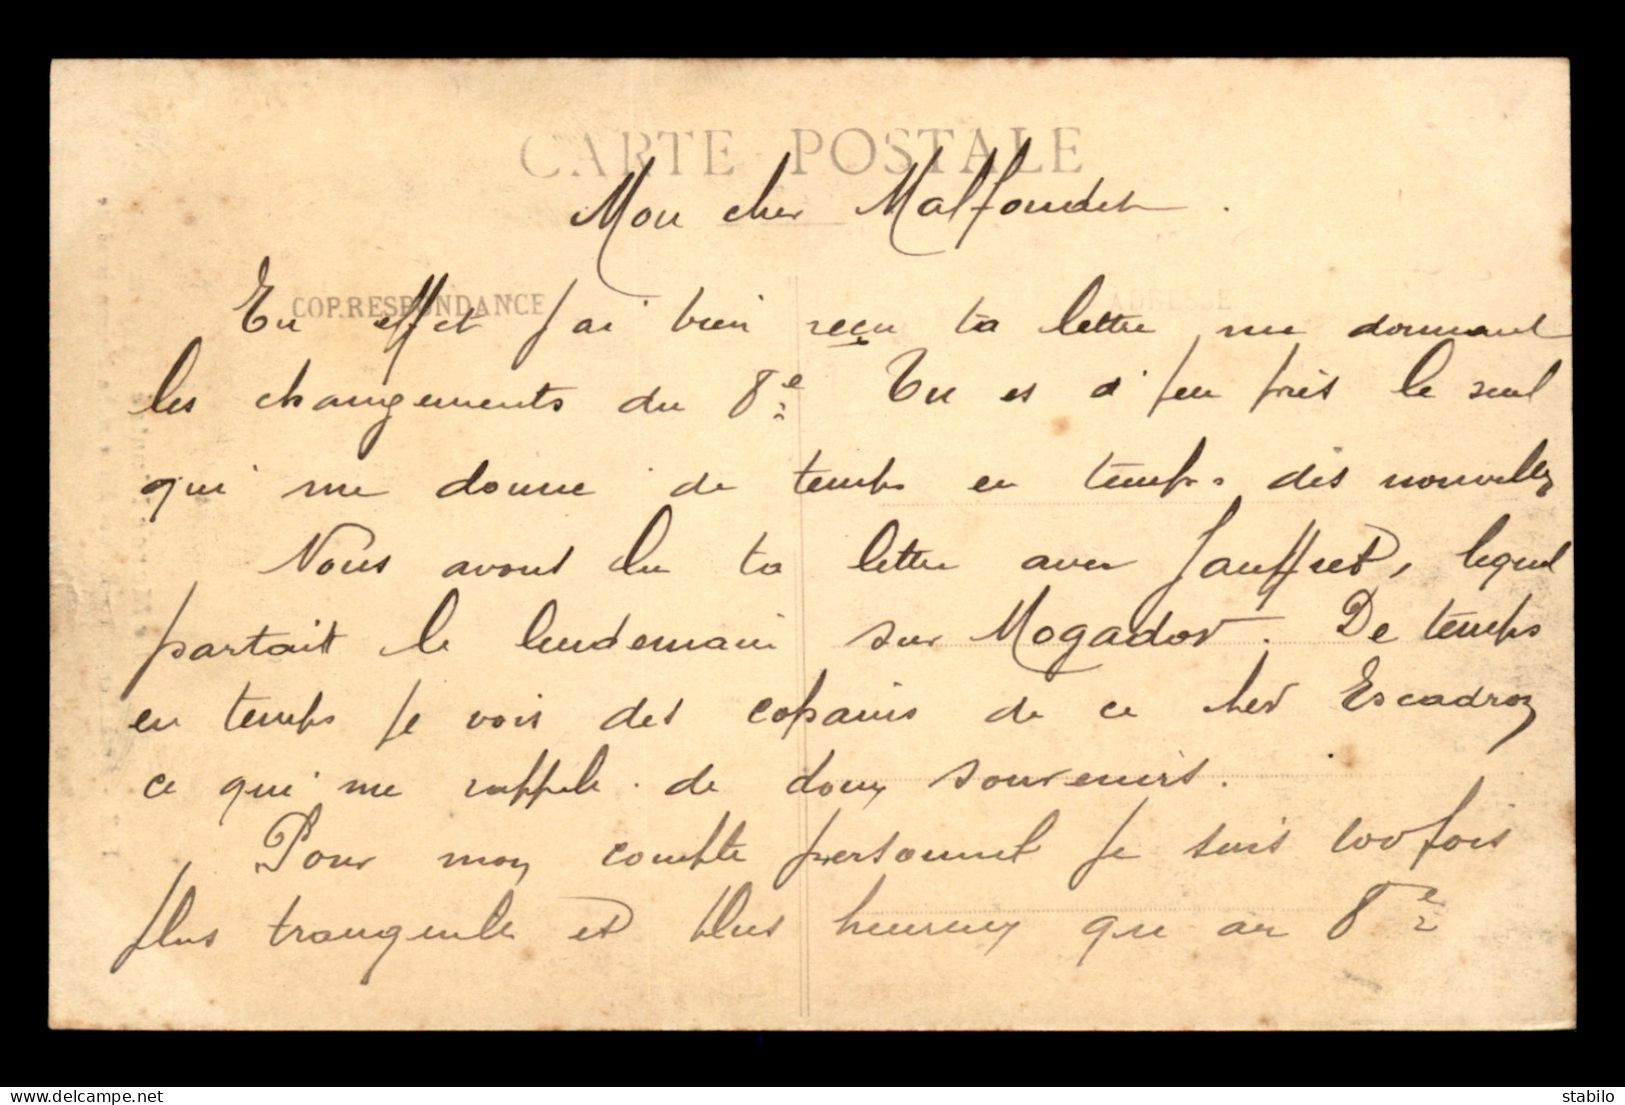 CARTE POSTALE
Mon cher Malfondet.
CORRESPONDANCE
ADRESSE
En effet j'ai bien reçu ta lettre me donnant
les changements du 8e Tu es à peu près le seul
qui me donne de temps en temps des nouvelles
Nous avons lu ta lettre avec Jauffret, lequel
partait le lendemain sur Mogador. De temps
en temps je vois des copains de ce cher Escadron
ce qui me rappele de doux souvenirs.
Pour mon compte personnel je suis 100 fois
plus tranquille et plus heureux que au 8e
www.delcampe.net
stabilo